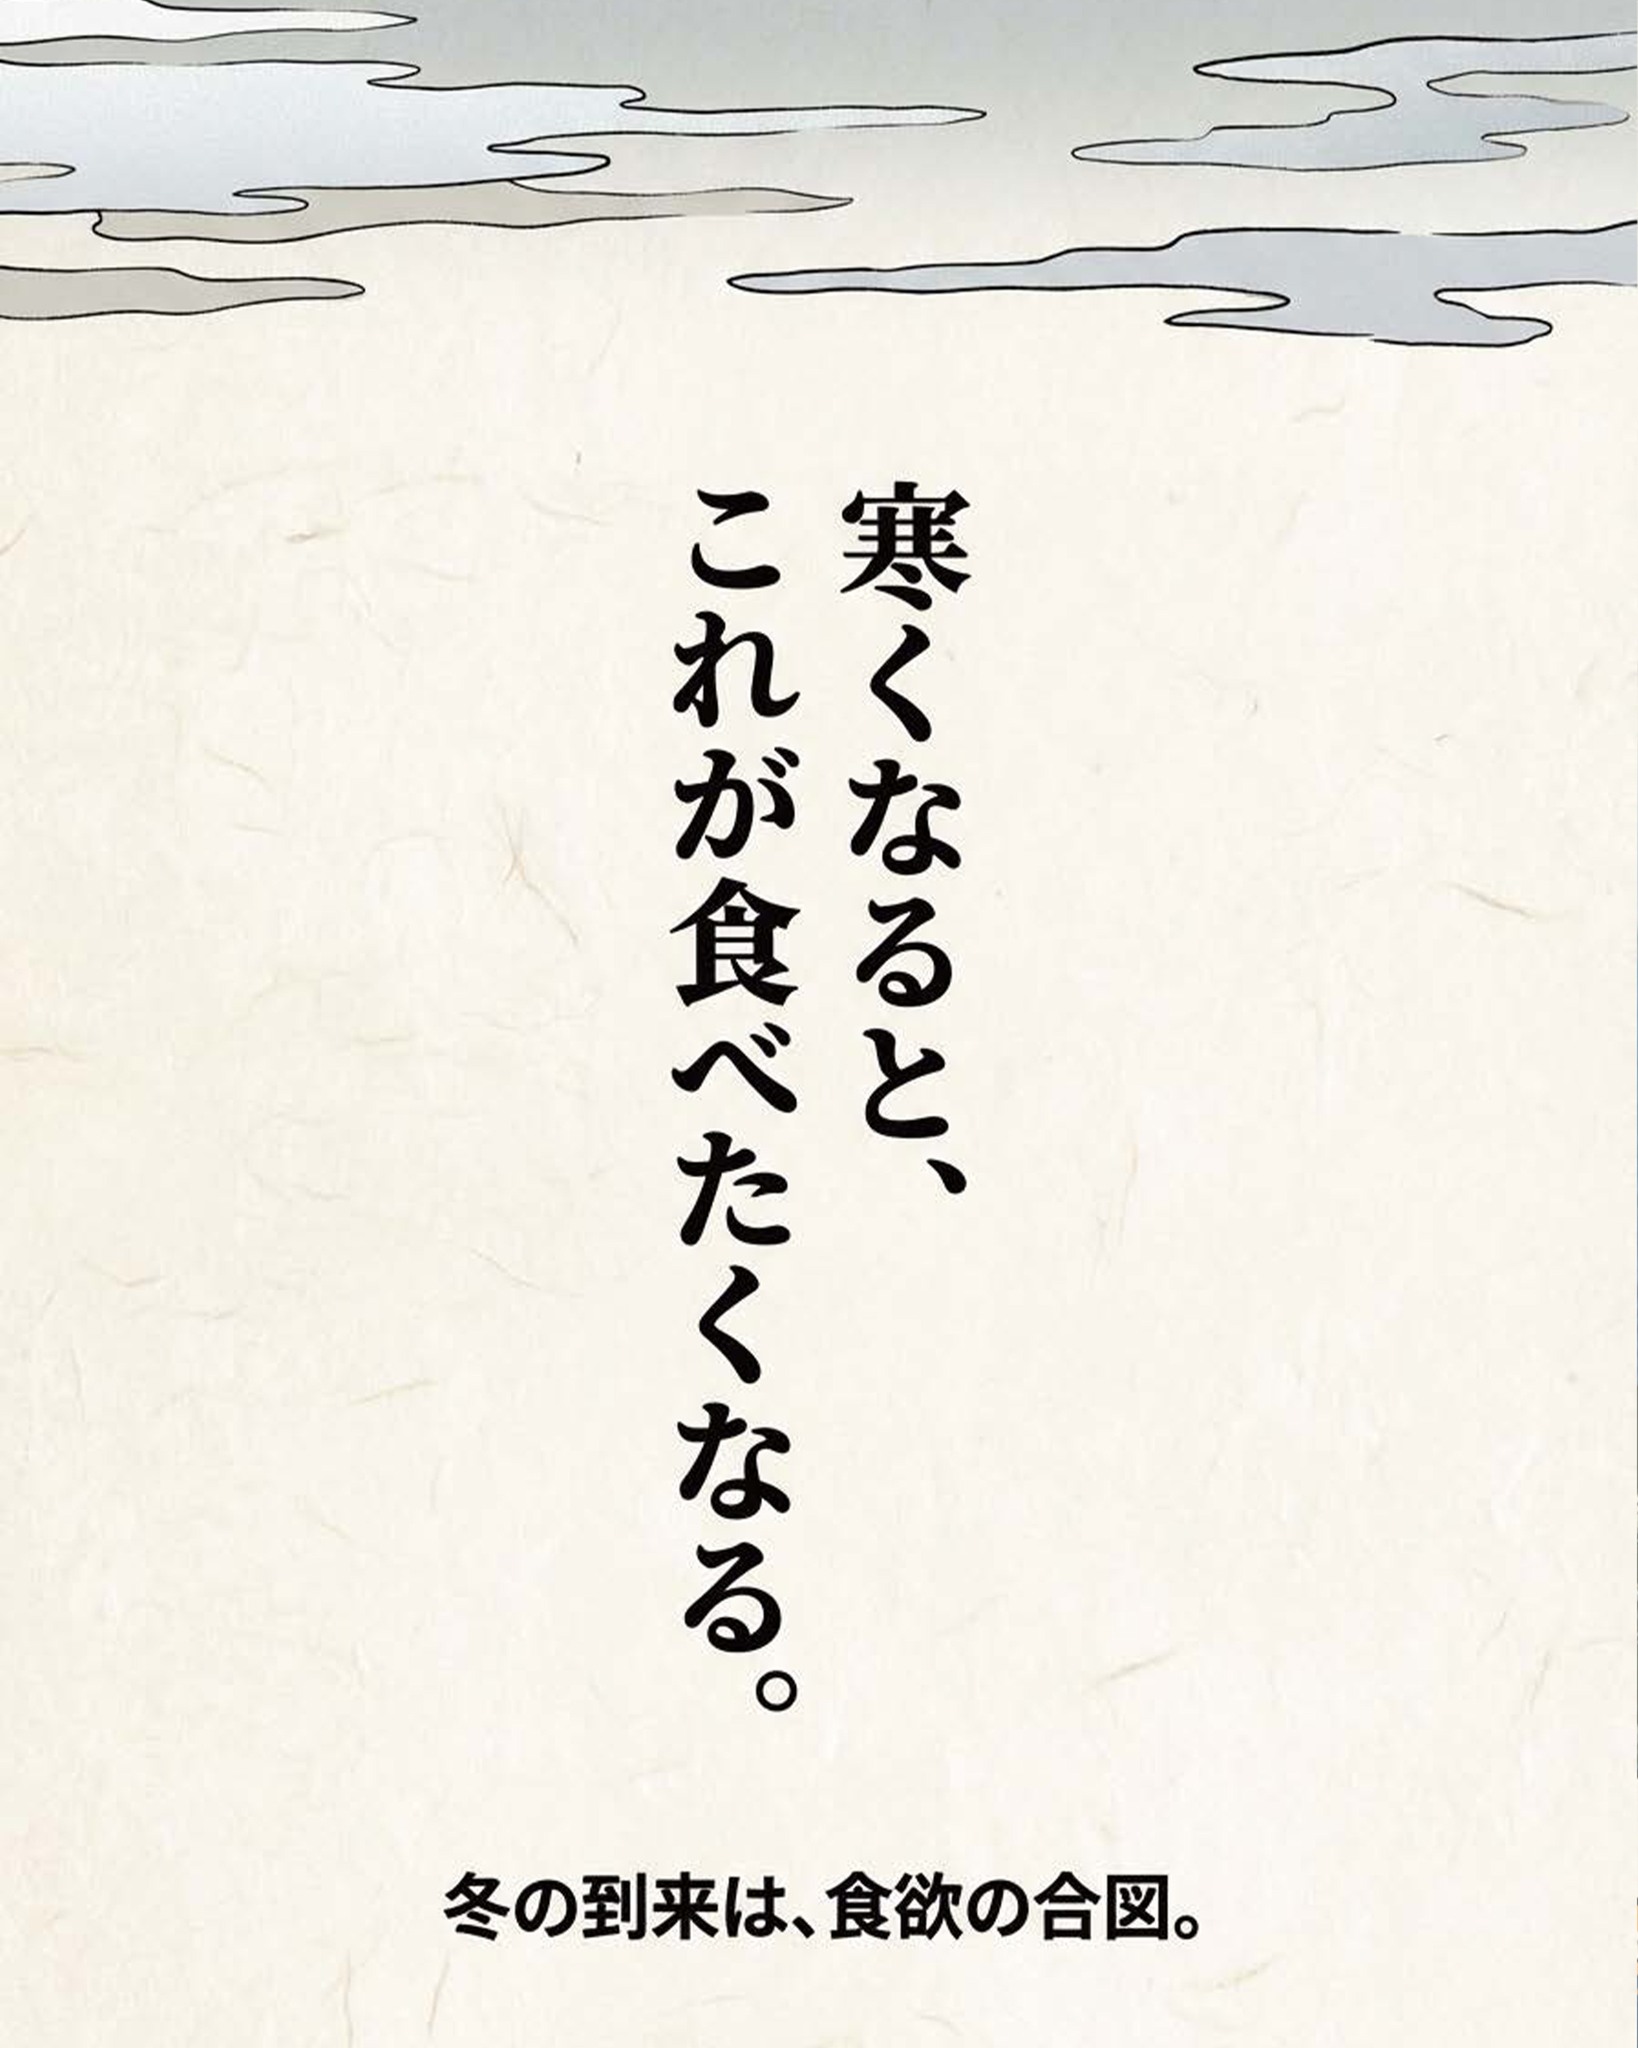 寒くなると、
これが食べたくなる。
冬の到来は、食欲の合図。